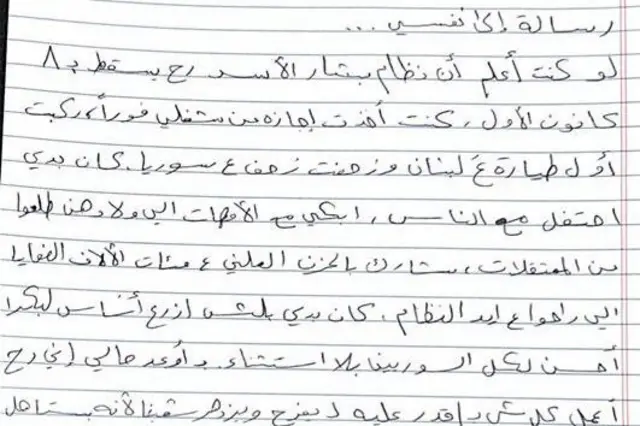 رسالة إلى نفسي ...
لو كنت أعلم أن نظام بشار الأسد رح يسقط بـ ٨
كانون الأول، كنت أخذت إجازة من شغلي فوراً، ركبت
أول طيارة عَ لبنان وزحفت زحف ع سوريا. كان بدي
احتفل مع الناس، ابكي مع الأمهات الي ولادهن طلعوا
من المعتقلات، شارك بالحزن العلني ع مئات الألاف الضحايا
الي راحوا ع ايد النظام. كان بدي بلش ازرع أساس لبكرا
أحسن لكل السوريين بلا استثناء. و أوعد حالي إني رح
أعمل كل شي بقدر عليه ليفرح ويزدهر شعبنا لأنه بستاهل